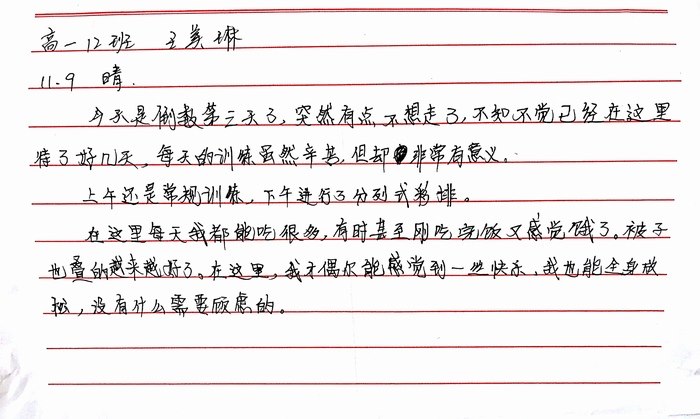 高一12班 王美琳
11.9 晴.
今天是倒数第三天了,突然有点不想走了,不知不觉已经在这里
待了好几天,每天的训练虽然辛苦,但却非常有意义。
上午还是常规训练,下午进行了分列式彩排。
在这里每天我都能吃很多,有时甚至刚吃完饭又感觉饿了。被子
也叠的越来越好了。在这里,我才偶尔能感觉到一些快乐,我也能全身放
松,没有什么需要顾虑的。